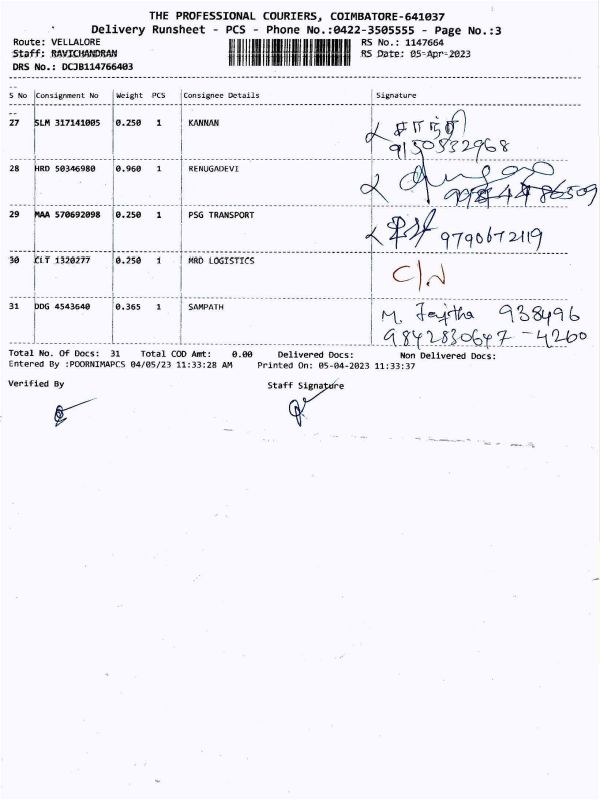 THE PROFESSIONAL COURIERS, COIMBATORE-641037
Delivery Runsheet - PCS - Phone No.:0422-3505555 - Page No.:3
Route: VELLALORE RS No.: 1147664
Staff: RAVICHANDRAN RS Date: 05-Apr-2023
DRS No.: DCJB114766403
S No Consignment No Weight PCS Consignee Details Signature
27 SLM 317141005 0.250 1 KANNAN
9150532968
28 HRD 50346980 0.960 1 RENUGADEVI
29 MAA 570692098 0.250 1 PSG TRANSPORT
9790672119
30 CLT 1320277 0.250 1 MRD LOGISTICS C/N
31 DDG 4543640 0.365 1 SAMPATH M. 938496
9842830647 - 4260
Total No. Of Docs: 31 Total COD Amt: 0.00 Delivered Docs: Non Delivered Docs:
Entered By :POORNIMAPCS 04/05/23 11:33:28 AM Printed On: 05-04-2023 11:33:37
Verified By Staff Signature